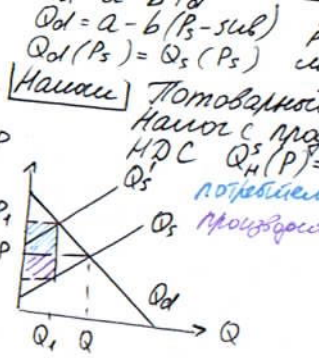 Qd = a - b(Ps - sub)
Qd(Ps) = Qs(Ps)
Налог Потоварный
Налог с
НДС Q^s_н(P) =
Qs'
потребител
Qs
производ
P
P1
P
Qd
Q1 Q Q